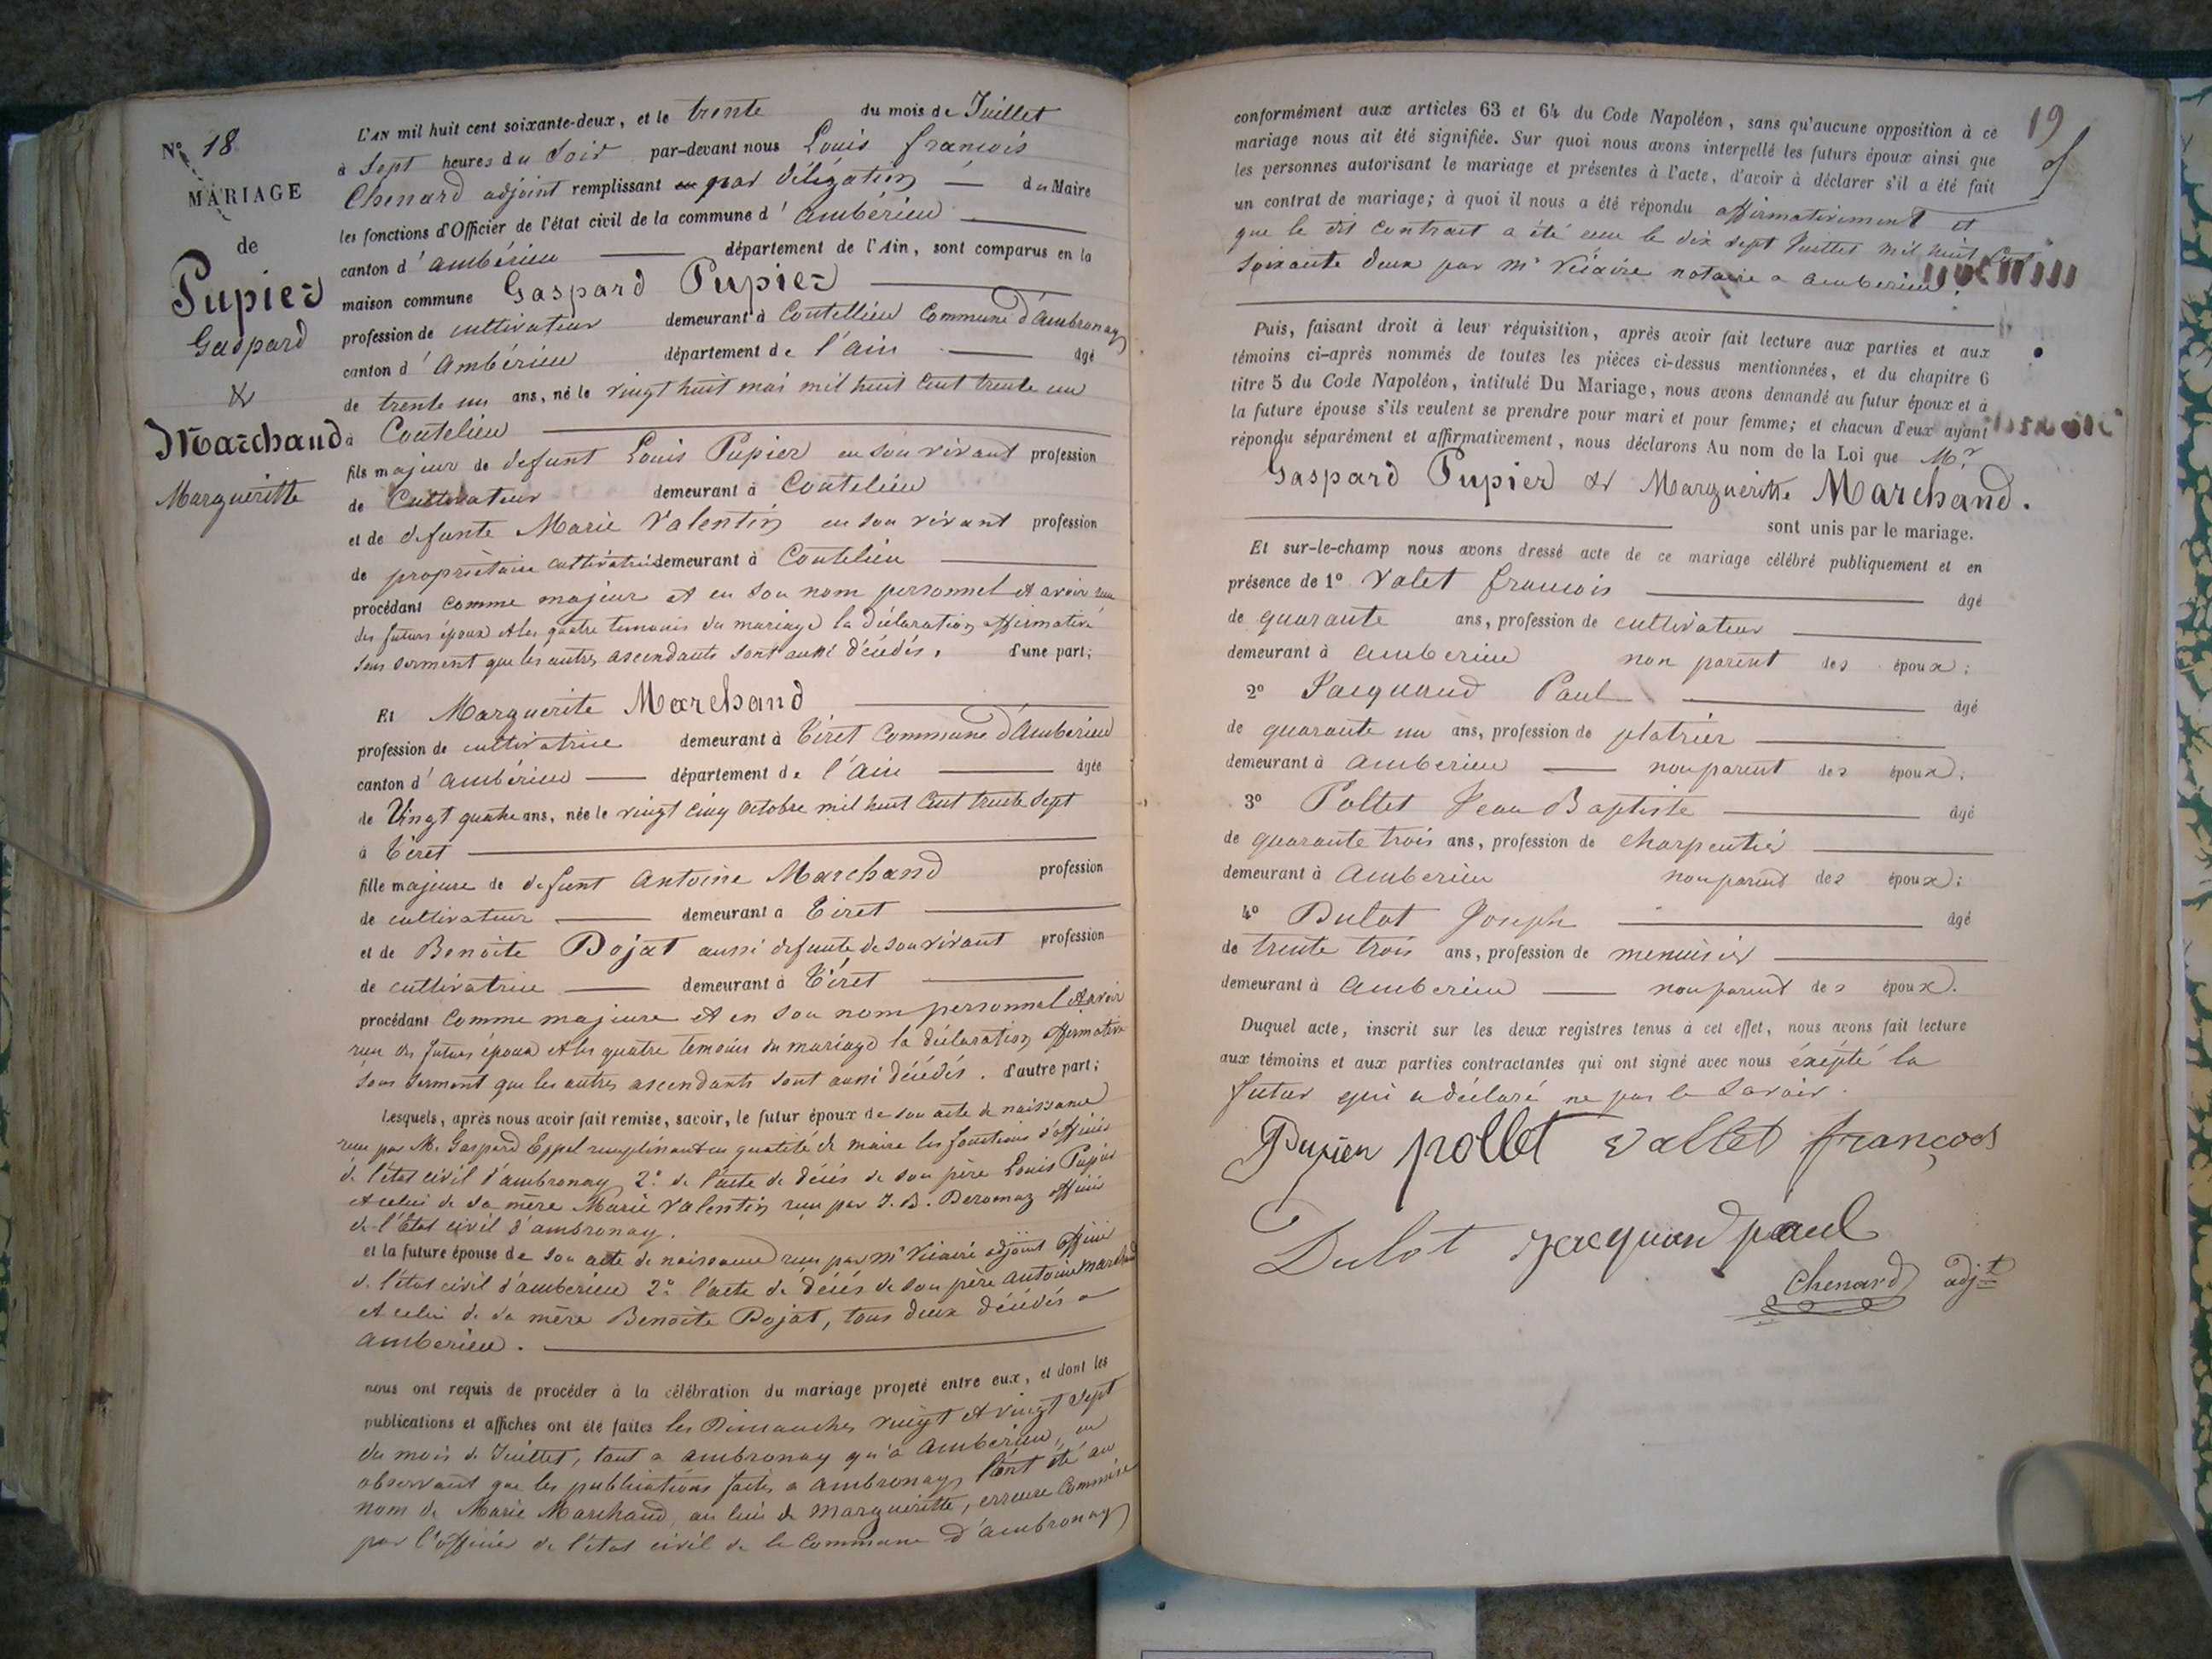 N° 18
MARIAGE
de
Pupier
Gaspard
&
Marchand
Margueritte
L'AN mil huit cent soixante-deux, et le trente du mois de Juillet
à Sept heures du Soir par-devant nous Louis françois
Chenard adjoint remplissant par délégation du Maire
les fonctions d'Officier de l'état civil de la commune d'ambérieu
canton d'ambérieu département de l'Ain, sont comparus en la
maison commune Gaspard Pupier
profession de cultivateur demeurant à Coutellieu Commune d'Ambronay
canton d'Ambérieu département de l'ain âgé
de trente un ans, né le vingt huit mai mil huit cent trente un
à Coutelieu
fils majeur de defunt Louis Pupier en son vivant profession
de Cultivateur demeurant à Coutelieu
et de defunte Marie Valentin en son vivant profession
de propriétaire cultivatrice demeurant à Coutelieu
procédant comme majeur et en son nom personnel et avoir reçu
des futurs époux et les quatre temoins du mariage la déclaration affirmative
sous serment que les autres ascendants sont aussi décédés. d'une part;
Et Marguerite Marchand
profession de cultivatrice demeurant à Tiret Commune d'Ambérieu
canton d'ambérieu département de l'ain âgée
de Vingt quatre ans, née le vingt cinq octobre mil huit cent trente sept
à Tiret
fille majeure de defunt antoine Marchand profession
de cultivateur demeurant à Tiret
et de Benoite Bojat aussi defunte de son vivant profession
de cultivatrice demeurant à Tiret
procédant comme majeure et en son nom personnel et avoir
reçu des futurs époux et les quatre temoins du mariage la déclaration affirmative
sous serment que les autres ascendants sont aussi décédés. d'autre part;
Lesquels, après nous avoir fait remise, savoir, le futur époux de son acte de naissance
reçu par M. Gaspard Eppel remplissant en qualité de maire les fonctions d'officier
de l'état civil d'ambronay 2° de l'acte de décès de son père Louis Pupier
et celui de sa mère Marie Valentin reçu par J. B. Deromaz officier
de l'état civil d'ambronay.
et la future épouse de son acte de naissance reçu par Mr Vicaire adjoint officier
de l'état civil d'amberieu 2° l'acte de décès de son père antoine Marchand
et celui de sa mère Benoite Bojat, tous deux décédés a
amberieu.
nous ont requis de procéder à la célébration du mariage projeté entre eux, et dont les
publications et affiches ont été faites les Dimanches vingt et vingt sept
du mois de Juillet, tant a ambronay qu'à amberieu, en
observant que les publications faites a ambronay l'ont été au
nom de Marie Marchand, au lieu de margueritte, erreure commise
par l'officier de l'état civil de la commune d'ambronay
19
conformément aux articles 63 et 64 du Code Napoléon, sans qu'aucune opposition à ce
mariage nous ait été signifiée. Sur quoi nous avons interpellé les futurs époux ainsi que
les personnes autorisant le mariage et présentes à l'acte, d'avoir à déclarer s'il a été fait
un contrat de mariage; à quoi il nous a été répondu affirmativement et
que le dit contrat a été reçu le dix sept Juillet mil huit cent
soixante deux par Mr Vicaire notaire a amberieu.
Puis, faisant droit à leur réquisition, après avoir fait lecture aux parties et aux
témoins ci-après nommés de toutes les pièces ci-dessus mentionnées, et du chapitre 6
titre 5 du Code Napoléon, intitulé Du Mariage, nous avons demandé au futur époux et à
la future épouse s'ils veulent se prendre pour mari et pour femme; et chacun d'eux ayant
répondu séparément et affirmativement, nous déclarons Au nom de la Loi que Mr
Gaspard Pupier et Marguerite Marchand.
sont unis par le mariage.
Et sur-le-champ nous avons dressé acte de ce mariage célébré publiquement et en
présence de 1° Valet francois âgé
de quarante ans, profession de cultivateur
demeurant à amberieu non parent des époux;
2° Jacquand Paul âgé
de quarante un ans, profession de platrier
demeurant à amberieu non parent des époux;
3° Pollet Jean Baptiste âgé
de quarante trois ans, profession de charpentier
demeurant à Amberieu non parent des époux;
4° Dulot Joseph âgé
de trente trois ans, profession de menuisier
demeurant à Amberieu non parent des époux.
Duquel acte, inscrit sur les deux registres tenus à cet effet, nous avons fait lecture
aux témoins et aux parties contractantes qui ont signé avec nous éxépté la
futur qui a déclaré ne pas le Savoir.
Pupier pollet vallet françois
Dulot jacquand paul
Chenard adjt